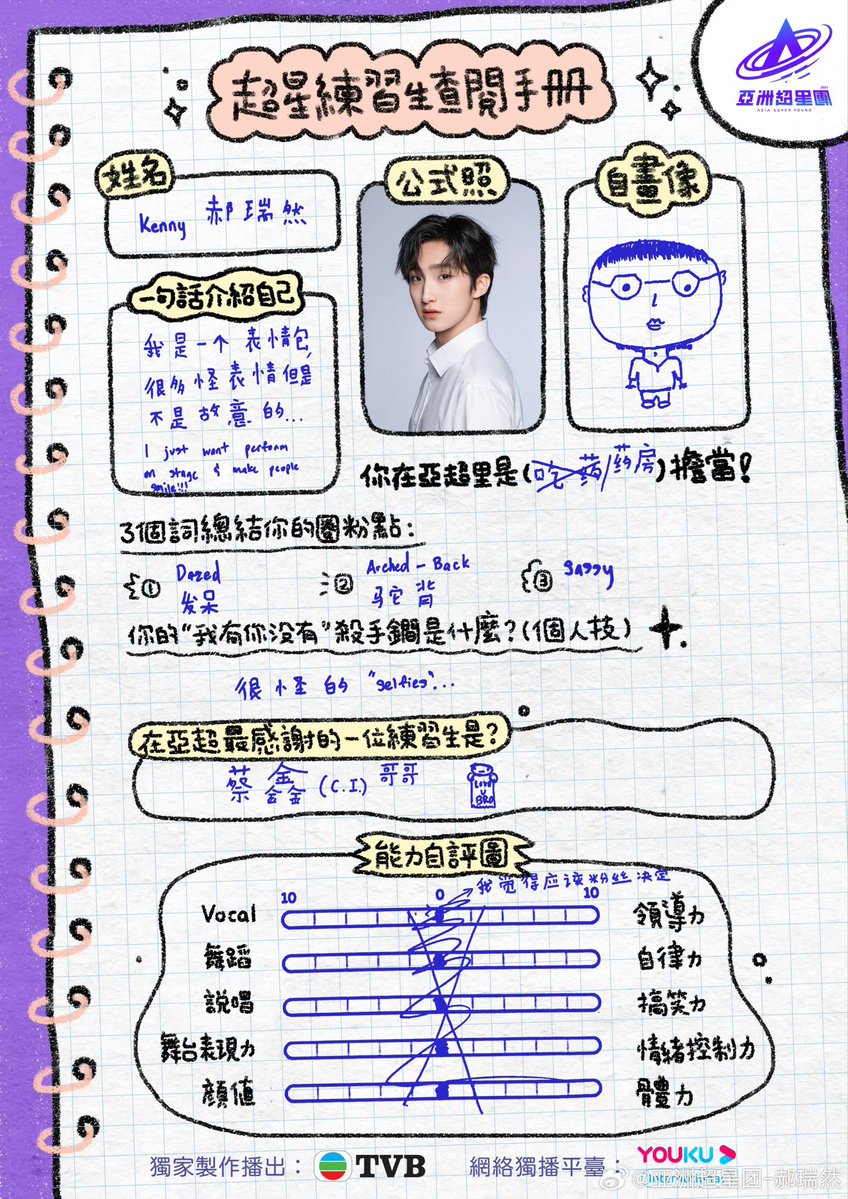 超星練習生查閱手册
亞洲超星團
ASIA SUPER YOUNG
姓名
Kenny 郝瑞然
公式照
自畫像
一句話介紹自己
我是一个表情包,
很多怪表情但是
不是故意的...
I just want perform
on stage & make people
smile!!!
你在亞超里是(吃药/药房)擔當!
3個詞總結你的圈粉點:
① Dazed
发呆
② Arched-Back
驼背
③ Sassy
你的"我有你没有"殺手鐧是什麼?(個人技)
很怪的 "selfies"...
在亞超最感謝的一位練習生是?
蔡鑫 (C.I.) 哥哥
Love
U
BRO
能力自評圖
我觉得应该粉丝决定
10 0 10
Vocal 領導力
舞蹈 自律力
説唱 搞笑力
舞台表現力 情緒控制力
顔值 體力
獨家製作播出: TVB 網絡獨播平臺: YOUKU
@亚洲超星团-郝瑞然